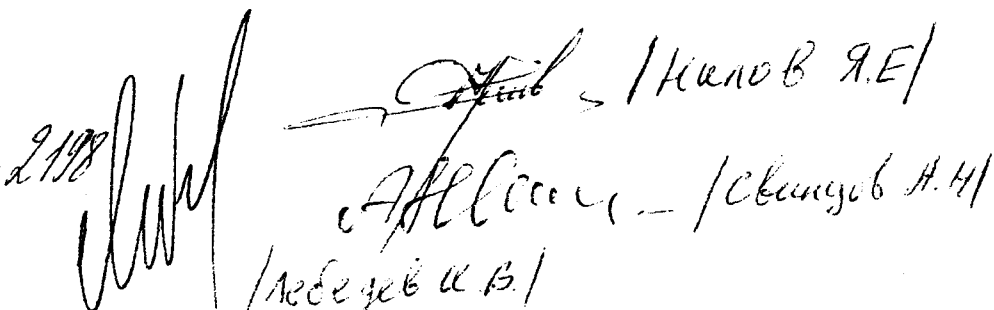 /Нилов Я.Е/
2198
/Свинцов А.Н/
/Лебедев И.В./